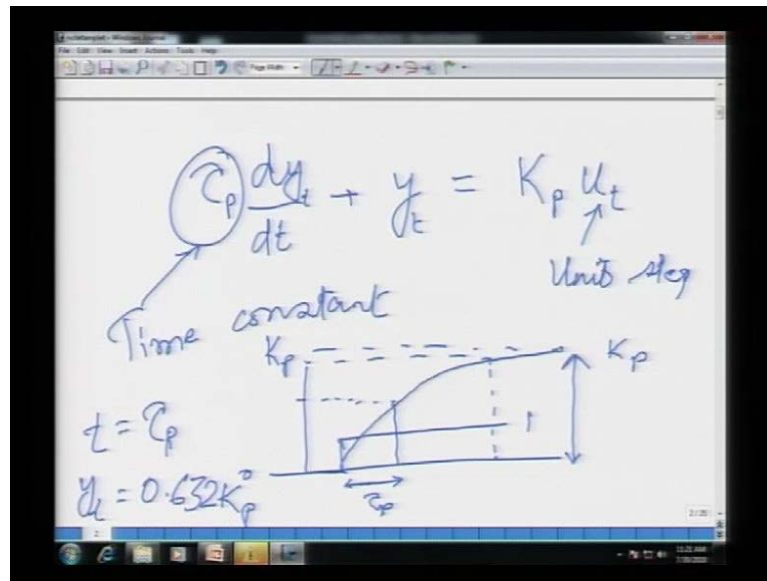 File Edit View Insert Actions Tools Help
Page Width
τp dyt/dt + yt = Kp ut
Unit step
Time constant
Kp
Kp
t = τp
1
yt = 0.632Kp
τp
2/20
2
11:21 AM